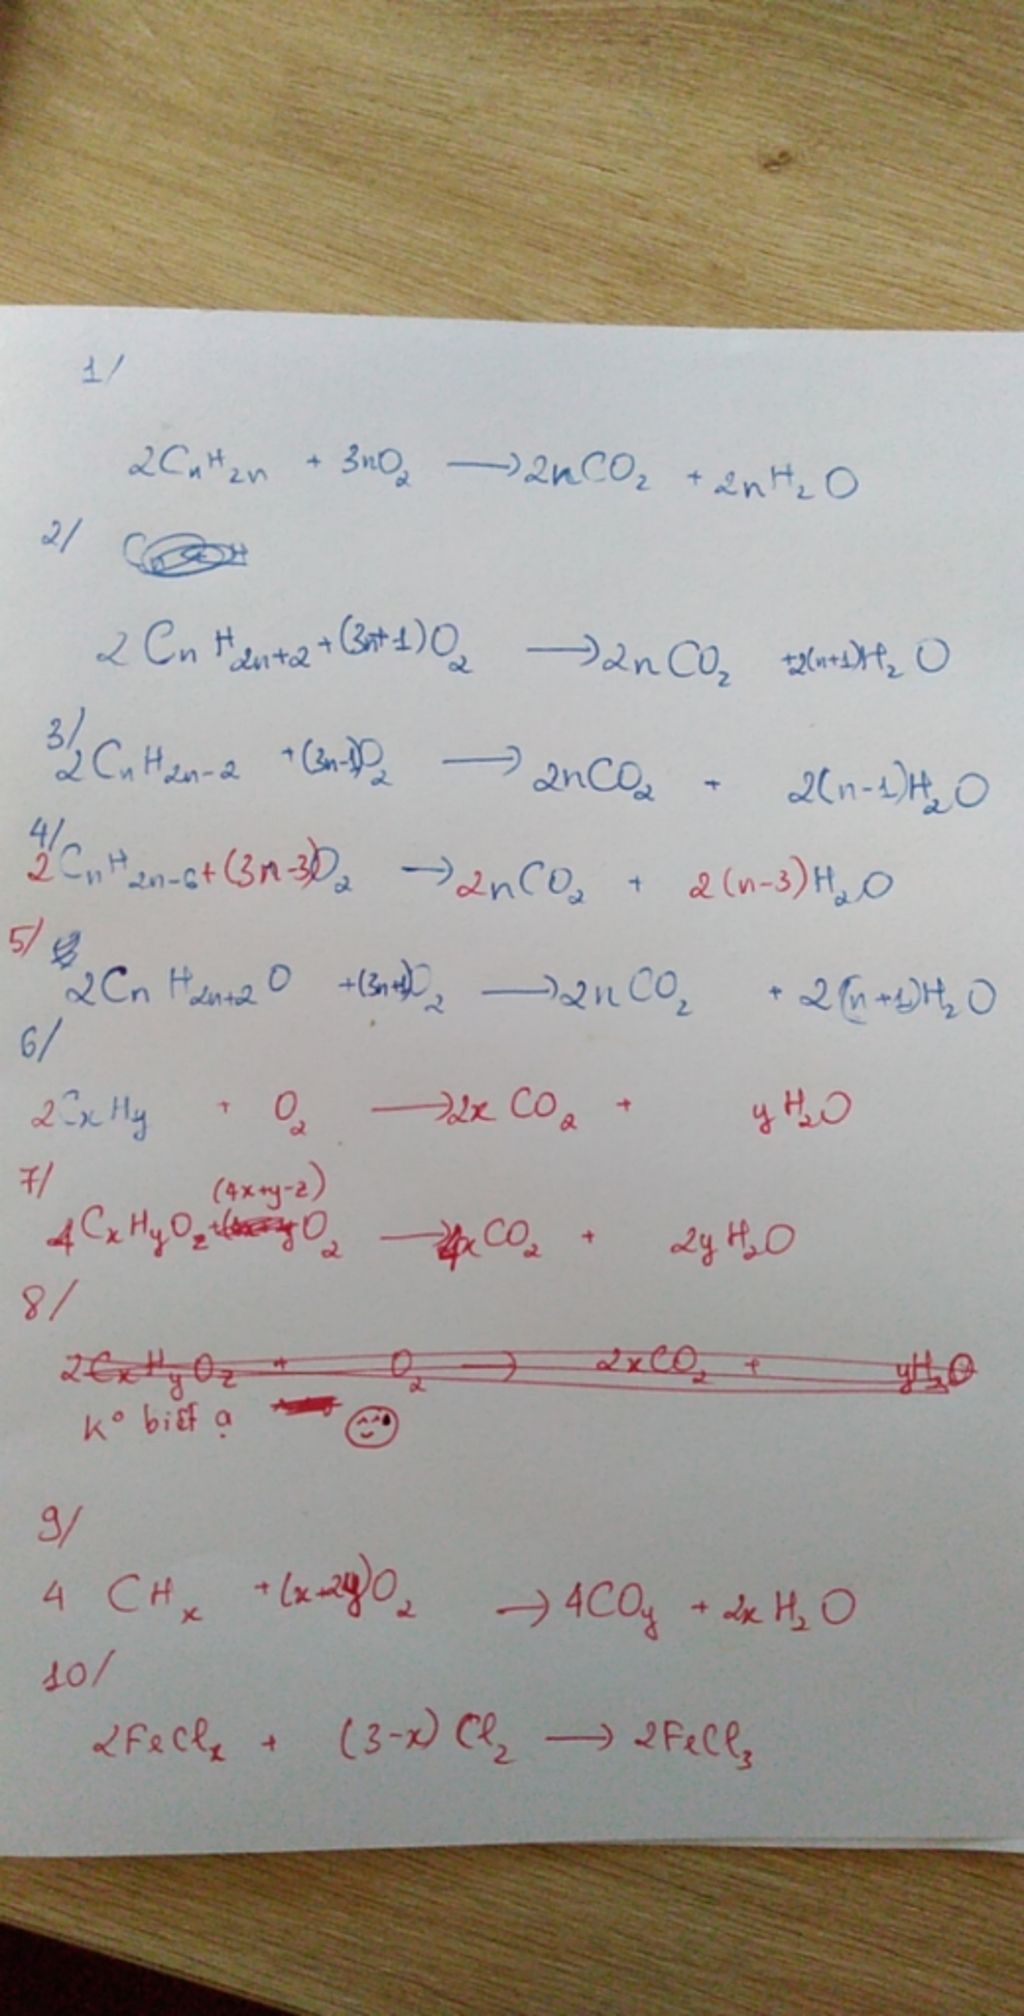 1/
2CnH2n + 3nO2 → 2nCO2 + 2nH2O
2/
2CnH2n+2 + (3n+1)O2 → 2nCO2 + 2(n+1)H2O
3/
2CnH2n-2 + (3n-1)O2 → 2nCO2 + 2(n-1)H2O
4/
2CnH2n-6 + (3n-3)O2 → 2nCO2 + 2(n-3)H2O
5/
2CnH2n+2O + (3n+1)O2 → 2nCO2 + 2(n+1)H2O
6/
2CxHy + O2 → 2xCO2 + yH2O
7/
(4x+y-z)
4CxHyOz + O2 → 4xCO2 + 2yH2O
8/
2CxHyOz + O2 → 2xCO2 + yH2O
K° biết ạ
9/
4 CHx + (x+2y)O2 → 4COy + 2xH2O
10/
2FeClx + (3-x)Cl2 → 2FeCl3